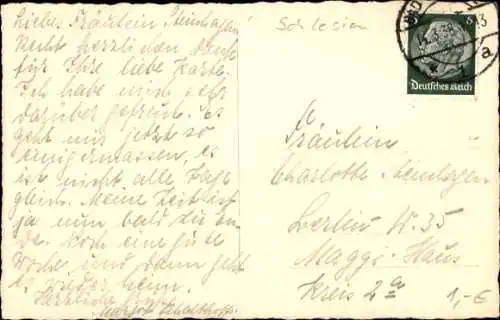 Liebes Fräulein Steinhagen!
Recht herzlichen Dank
für Ihre liebe Karte.
Ich habe mich sehr
darüber gefreut. Es
geht mir jetzt so
einigermassen, es
ist nicht alle Tage
gleich. Meine Zeit ist
ja nun bald zu En-
de. Noch eine gute
Woche und dann geht
es wieder heim.
Herzliche
Margot
Schlesien
6
Deutsches Reich
13
a
Fräulein
Charlotte Steinhagen
Berlin W. 35
Maggi-Haus
Kreis 2
1,-€